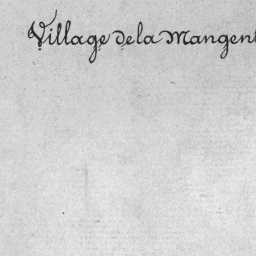 Village de la Mangent